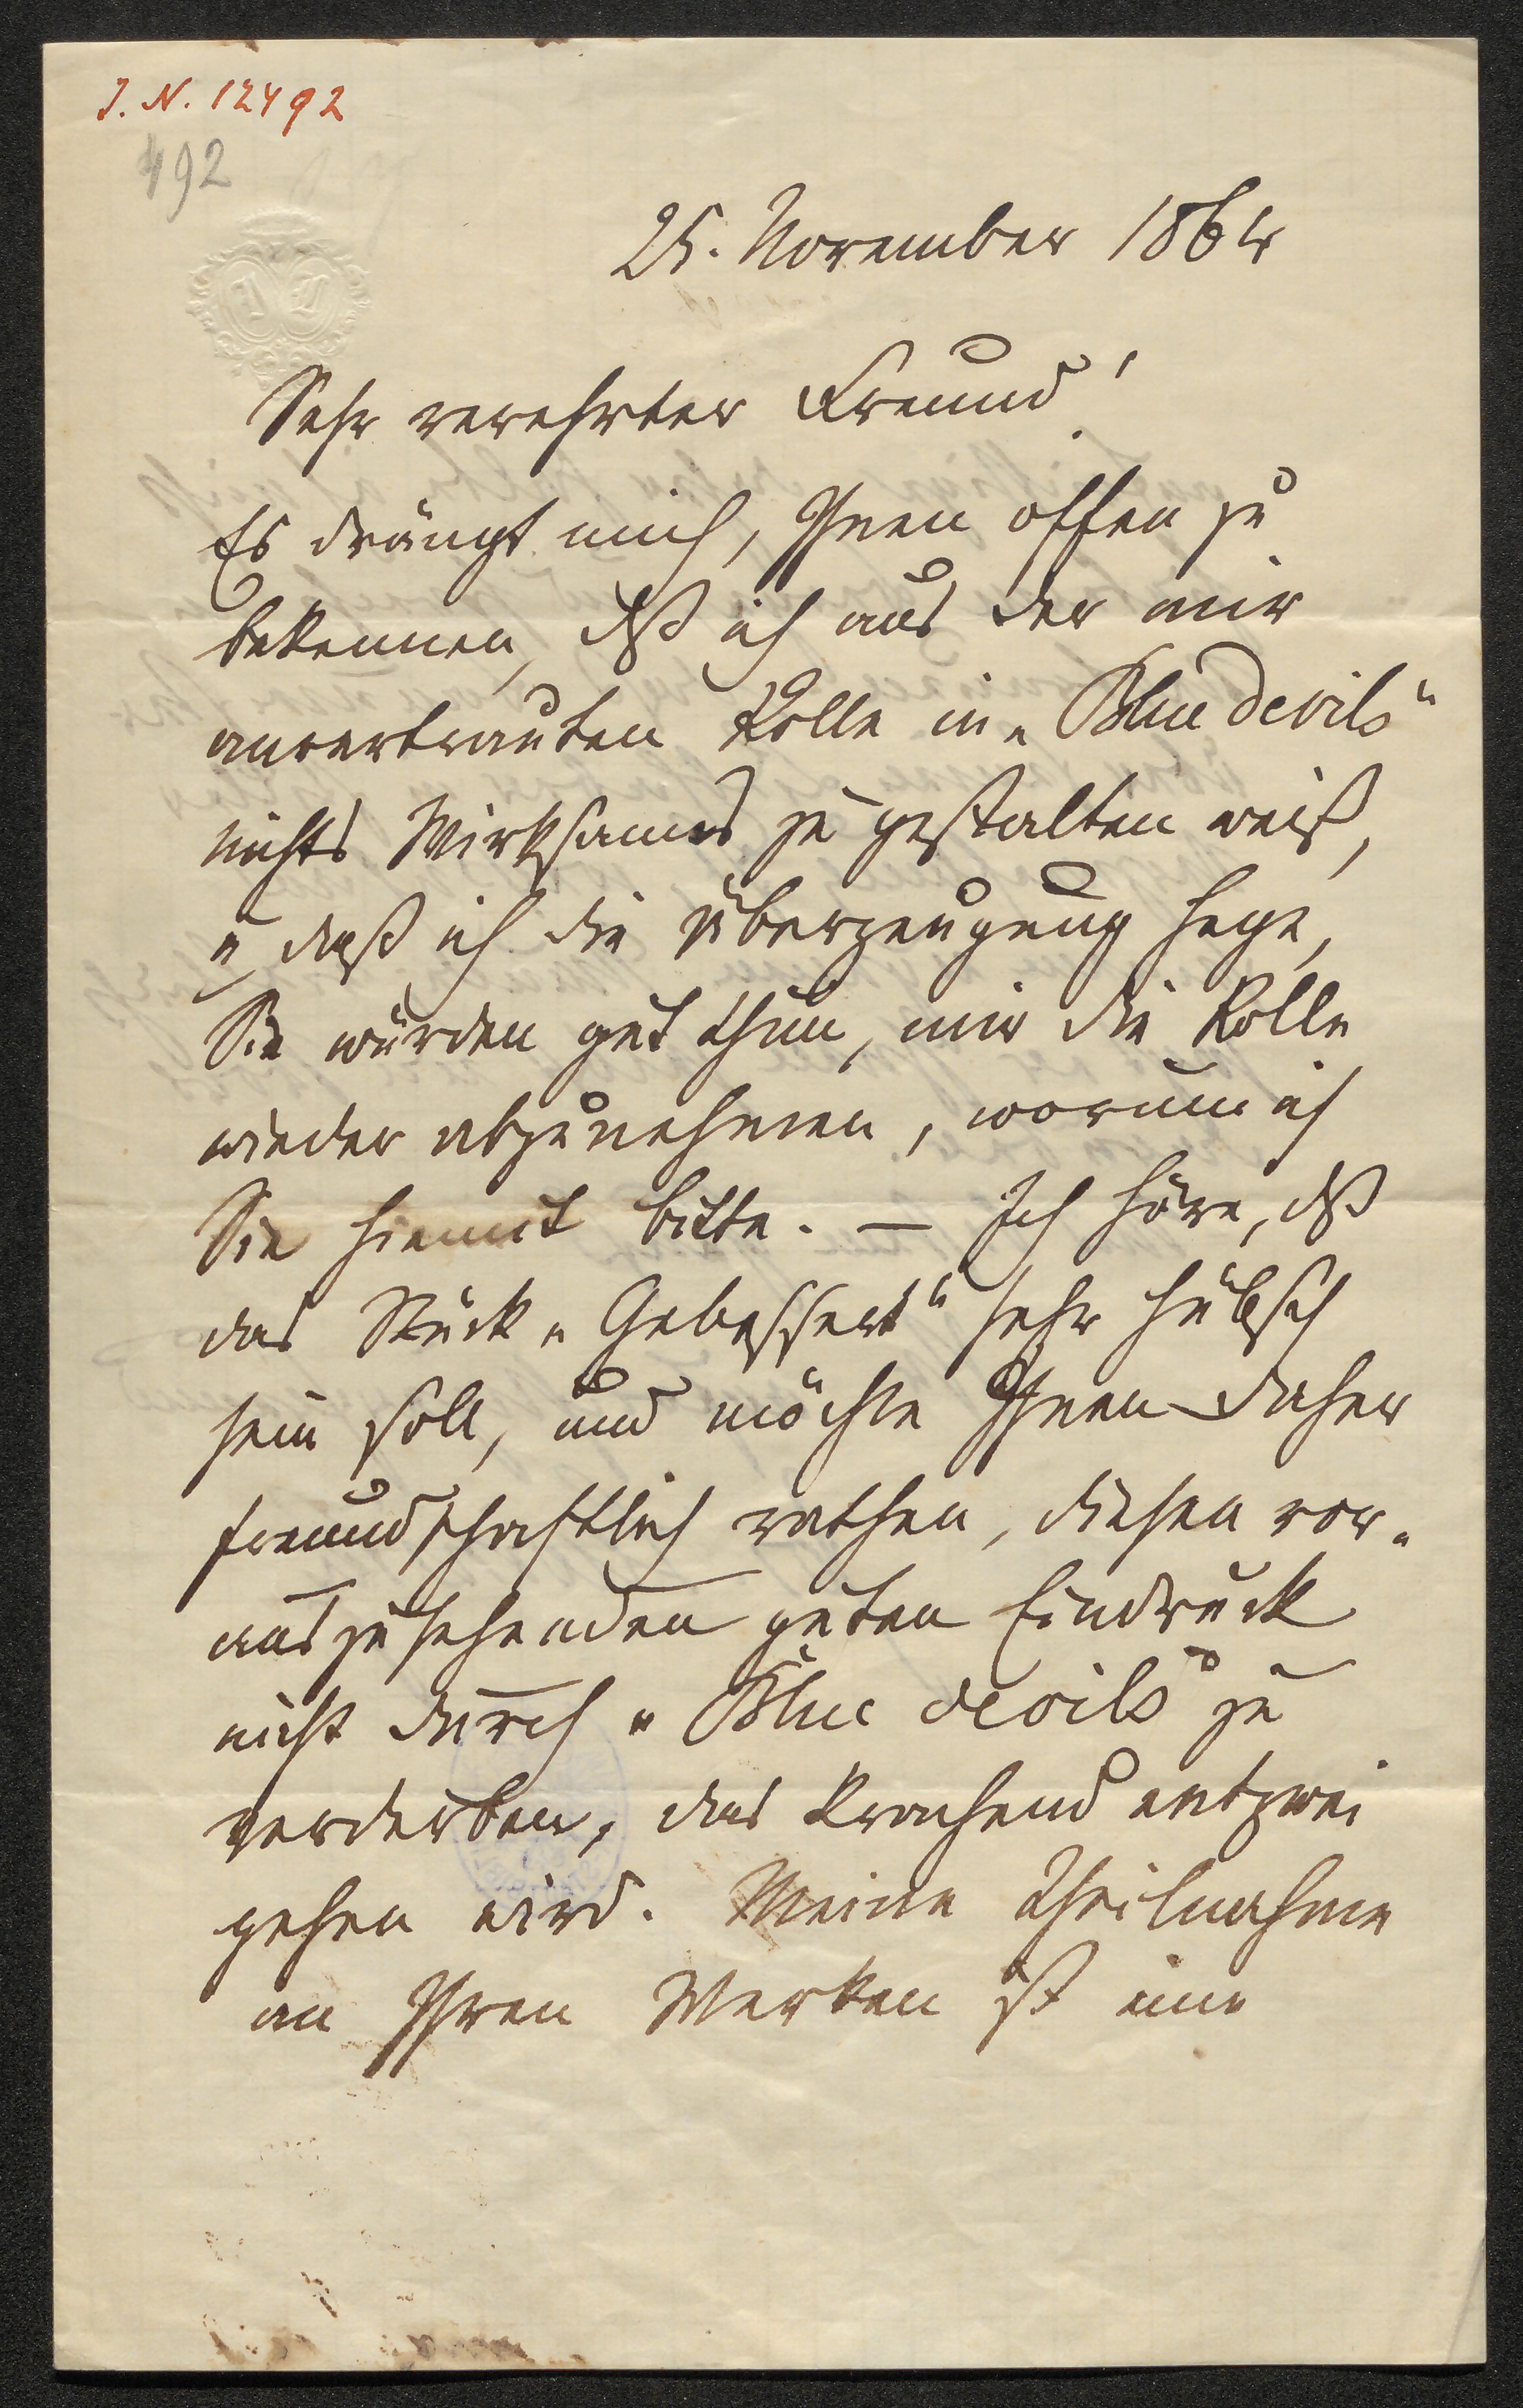 J. N. 12492
492
25. November 1864
Sehr verehrter Freund!
Es drängt mich, Ihnen offen zu
bekennen, dß ich aus der mir
anvertrauten Rolle in „Blue devils“
nichts Wirksames zu gestalten weiß,
u. daß ich die Überzeugung hege,
Sie würden gut thun, mir die Rolle
wieder abzunehmen, worum ich
Sie hiemit bitte. — Ich höre, dß
das Stück „Gebessert“ sehr hübsch
sein soll, und möchte Ihnen daher
freundschaftlich rathen, diesen vor-
auszusehenden guten Eindruck
nicht durch „Blue devils“ zu
verderben, das krachend entzwei
gehen wird. Meine Theilnahme
an Ihren Werken ist eine